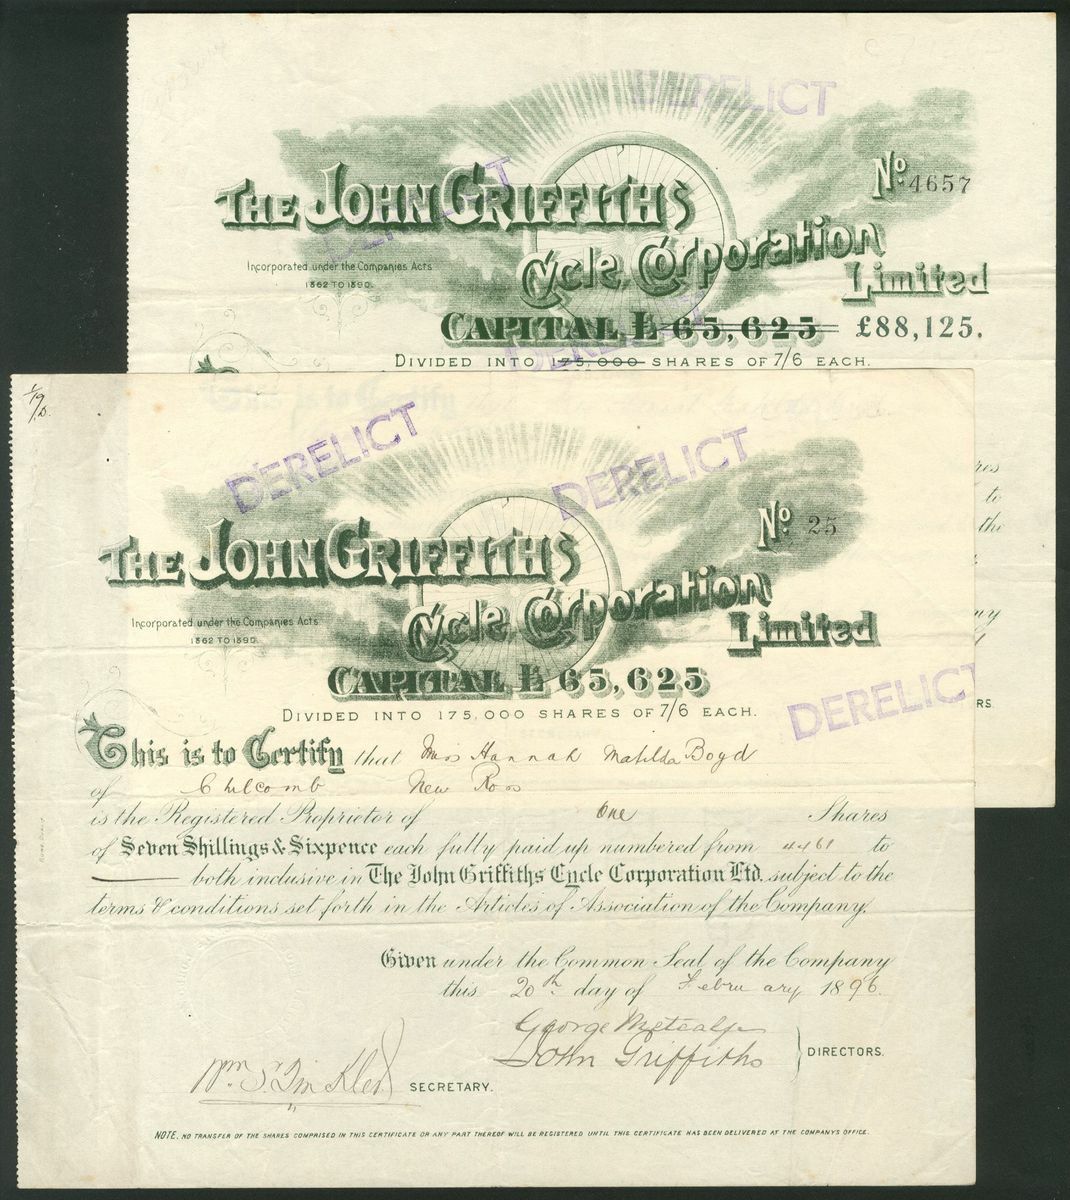 DERELICT
DERELICT
THE JOHN GRIFFITHS
No. 4657
Cycle Corporation
Limited
Incorporated under the Companies Acts
1862 TO 1890.
CAPITAL £ 65,625 £88,125.
DERELICT
DIVIDED INTO 175,000 SHARES OF 7/6 EACH.
This is to Certify
res
to
the
ny
RS.
DERELICT
DERELICT
DERELICT
THE JOHN GRIFFITHS
No. 25
Cycle Corporation
Limited
Incorporated under the Companies Acts
1862 TO 1890.
CAPITAL £ 65,625
DIVIDED INTO 175,000 SHARES OF 7/6 EACH.
This is to Certify that Miss Hannah Matilda Boyd
of Chilcomb New Ross
is the Registered Proprietor of One Shares
of Seven Shillings & Sixpence each fully paid up numbered from 4461 to
both inclusive in The John Griffiths Cycle Corporation Ltd. subject to the
terms & conditions set forth in the Articles of Association of the Company.
Given under the Common Seal of the Company
this 20th day of February 1896.
George Metcalfe
John Griffiths
DIRECTORS.
SECRETARY.
NOTE. NO TRANSFER OF THE SHARES COMPRISED IN THIS CERTIFICATE OR ANY PART THEREOF WILL BE REGISTERED UNTIL THIS CERTIFICATE HAS BEEN DELIVERED AT THE COMPANYS OFFICE.